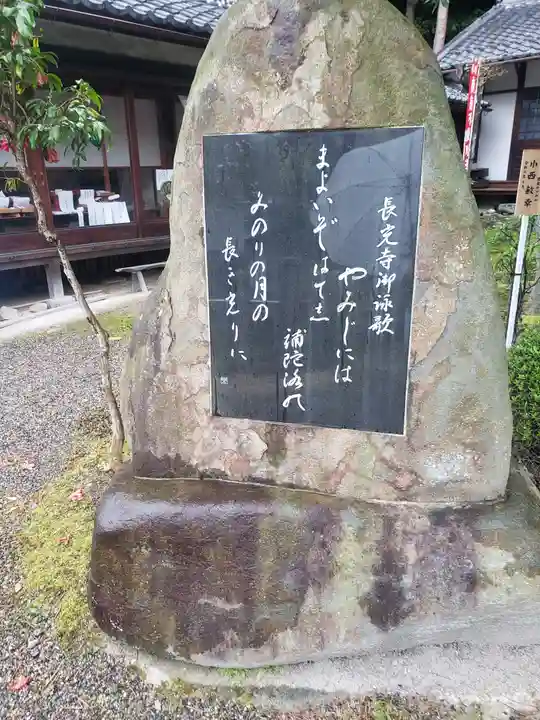 長光寺御詠歌
やみじには
まよいぞはてじ
補陀洛の
みのりの月の
長き光りに
小西